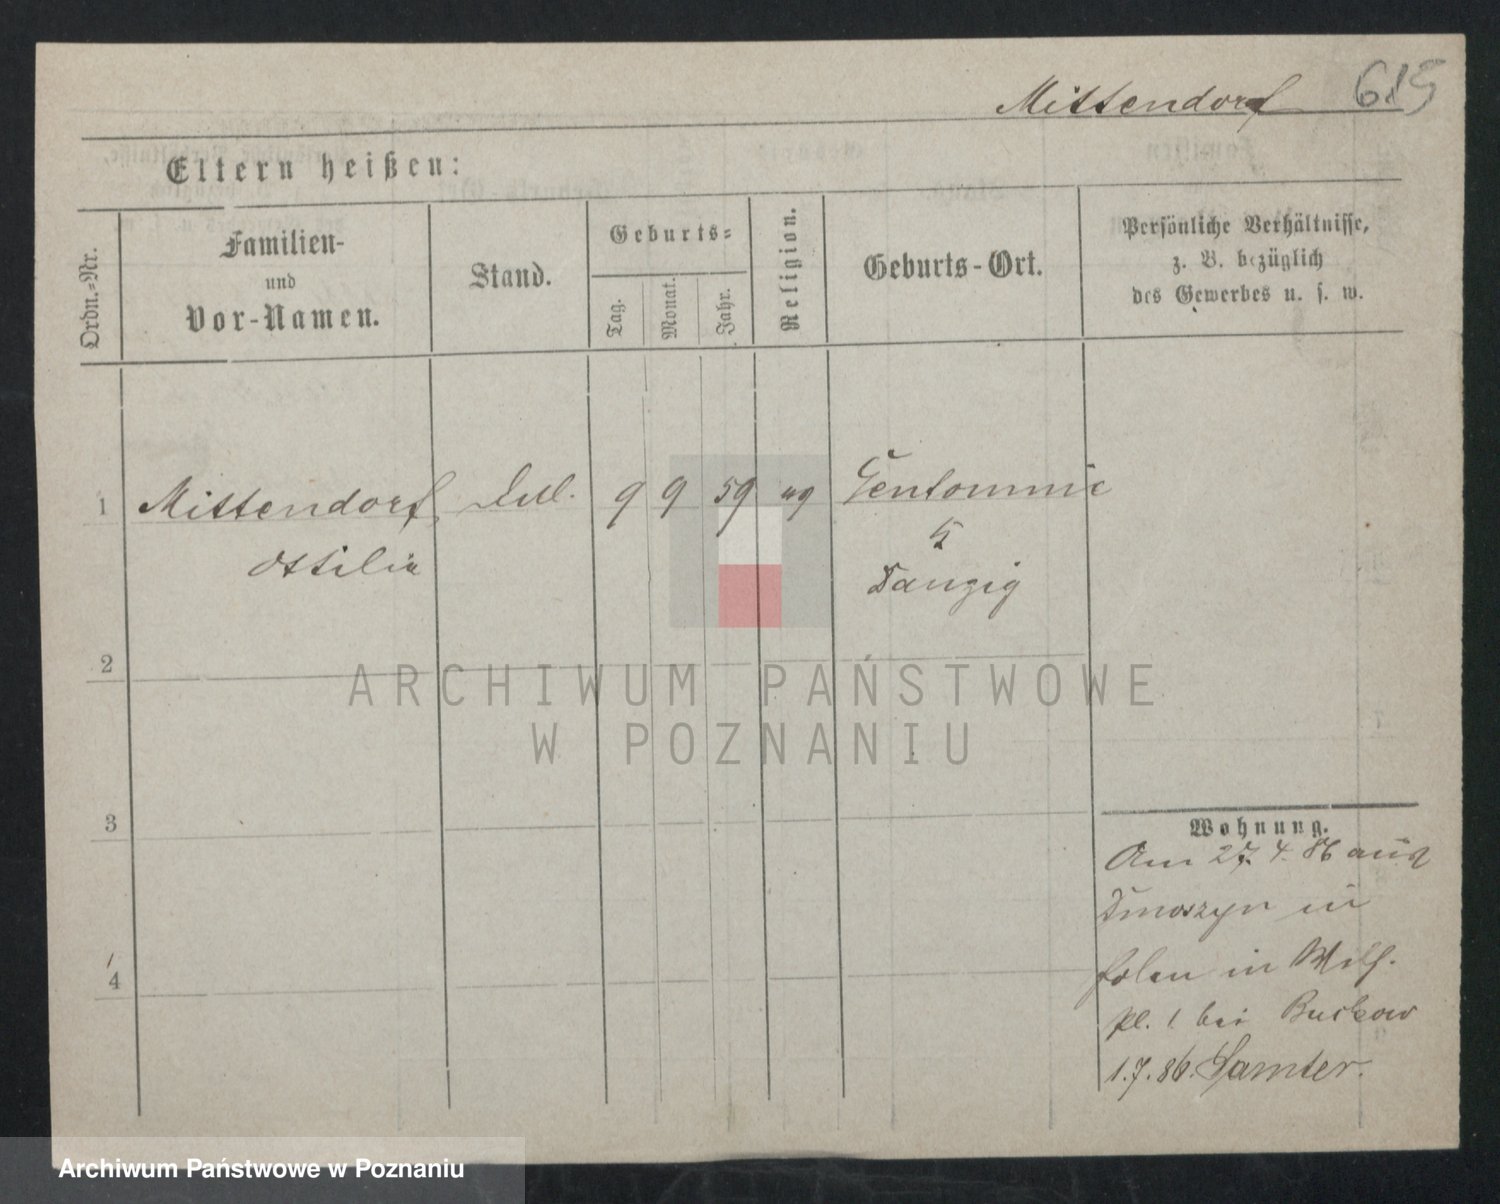 Mittendorf 615
Eltern heißen:
Ordn.-Nr.
Familien-
und
Vor-Namen.
Stand.
Geburts-
Tag.
Monat.
Jahr.
Religion.
Geburts-Ort.
Persönliche Verhältnisse,
z. B. bezüglich
des Gewerbes u. s. w.
1 Mittendorf, 9 9 59
Ottilie
Danzig
2
3
4
Wohnung.
Am 27. 4. 86 aus
in
Polen in Wilh.
Pl. 1 bei Buckow
1.7.86. Samter.
ARCHIWUM PAŃSTWOWE
W POZNANIU
Archiwum Państwowe w Poznaniu